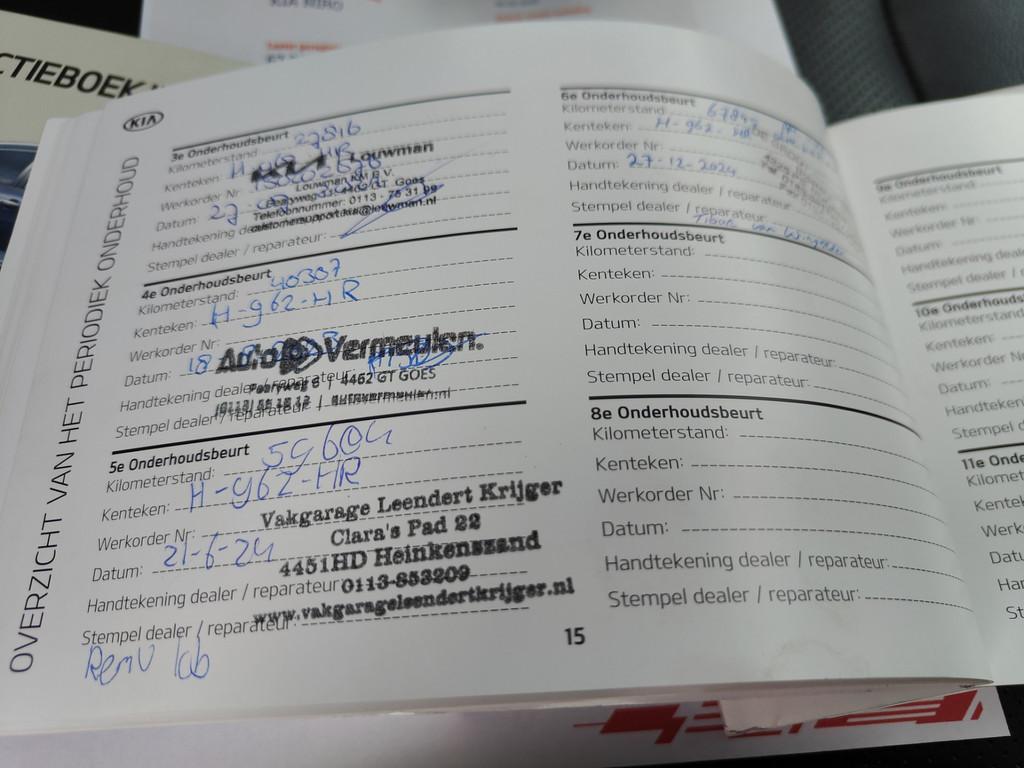 KIA NIRO
CTIEBOEK
KIA
OVERZICHT VAN HET PERIODIEK ONDERHOUD
3e Onderhoudsbeurt
Kilometerstand: 27816
Kenteken: H-962-HR
Louwman
Werkorder Nr:
Louwman KM B.V.
4462 GT Goes
Datum: 27
Telefoonnummer: 0113 - 75 31 99
Handtekening dealer / reparateur:
Stempel dealer / reparateur:
4e Onderhoudsbeurt
Kilometerstand: 40307
Kenteken: H-962-HR
Werkorder Nr:
Auto Vermeulen.
Datum: 18
4462 GT GOES
Handtekening dealer / reparateur:
Stempel dealer / reparateur:
5e Onderhoudsbeurt
Kilometerstand: 59604
Kenteken: H-962-HR
Werkorder Nr:
Vakgarage Leendert Krijger
Clara's Pad 22
Datum: 21-6-24
4451HD Heinkenszand
Handtekening dealer / reparateur:
0113-853209
www.vakgarageleendertkrijger.nl
Stempel dealer / reparateur:
6e Onderhoudsbeurt
Kilometerstand:
Kenteken: H-962-HR
Werkorder Nr:
Datum: 27-12-2024
Handtekening dealer / reparateur:
Stempel dealer / reparateur:
7e Onderhoudsbeurt
Kilometerstand:
Kenteken:
Werkorder Nr:
Datum:
Handtekening dealer / reparateur:
Stempel dealer / reparateur:
8e Onderhoudsbeurt
Kilometerstand:
Kenteken:
Werkorder Nr:
Datum:
Handtekening dealer / reparateur:
Stempel dealer / reparateur:
15
9e Onderhoudsbeurt
Kilometerstand:
Kenteken:
Werkorder Nr:
Datum:
Handtekening dealer
Stempel dealer /
10e Onderhouds
Kilometerstand
Kenteken:
Werkorder Nr
Datum:
Handtekening
Stempel d
11e Onder
Kilomet
Kentek
Werk
Datu
Han
St